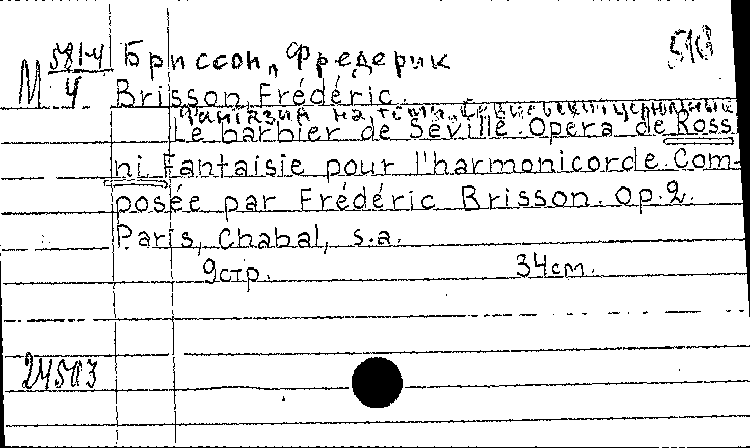 М 581-4/4 Бриссон, Фредерик 510
Brisson Frédéric.
Фантазия на темы "Севильский цирюльник"
Le barbier de Séville. Opera de Ross
ni Fantaisie pour l'harmonicorde. Com-
posée par Frédéric Brisson. Op. 2.
Paris, Chabal, s.a.
9стр. 34cm.
24503